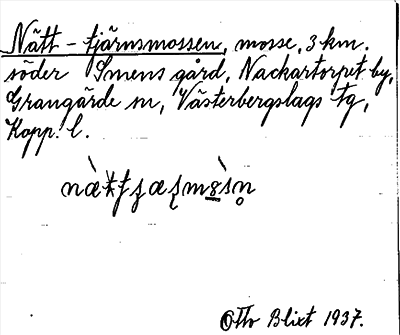 Nätt-tjärnsmossen, mosse, 3 km.
söder Smens gård, Nackartorpet by,
Grangärde sn, Västerbergslags tg,
Kopp. l.
Otto Blixt 1937.